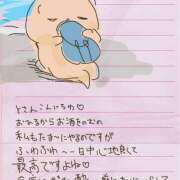 Yさんこんにちわ♡
お昼からお酒をのむの
私もたま〜にやるのですが
ふわふわ〜〜日中心地良くて
最高ですよね♡